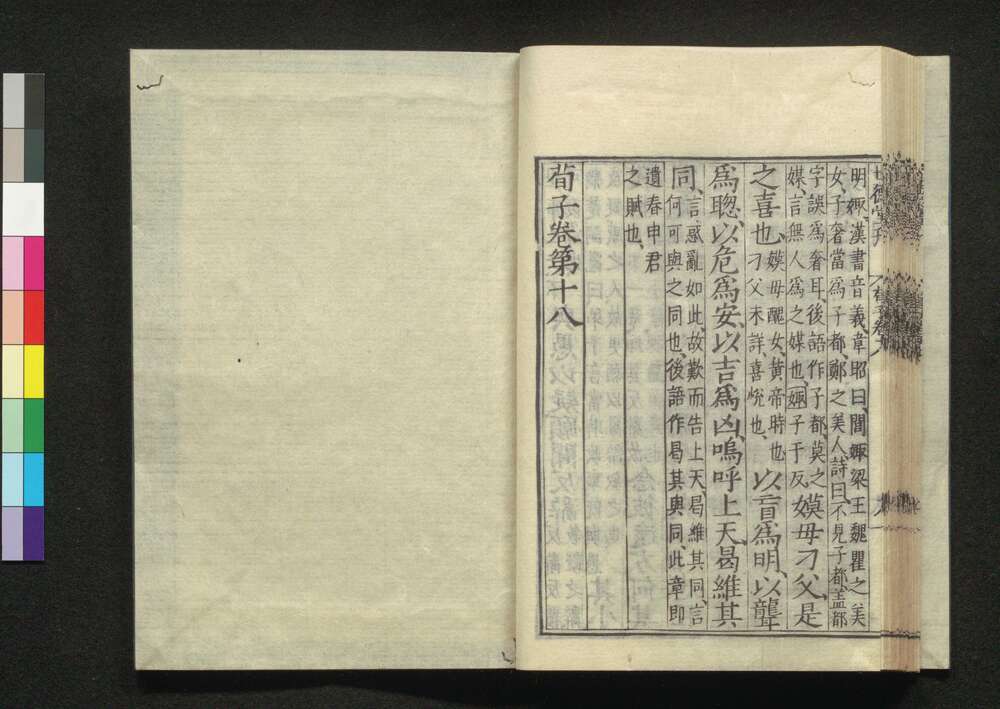 明娵、漢書音義韋昭曰、閭娵梁王魏瞿之美
女、子奢當爲子都、鄭之美人、詩曰、不見子都、蓋都
字誤爲奢耳、後語作子都、莫之
媒、言無人爲之媒也、娵子于反、
嫫母刁父、是
之喜也、
嫫母醜女、黃帝時也
刁父未詳、喜悅也、
以盲爲明、以聾
爲聰、以危爲安、以吉爲凶、嗚呼上天、曷維其
同、
言惑亂如此、故歎而告上天、曷維其同、言
何可與之同也、後語作曷其與同、此章即
遺春申君
之賦也、
荀子卷第十八